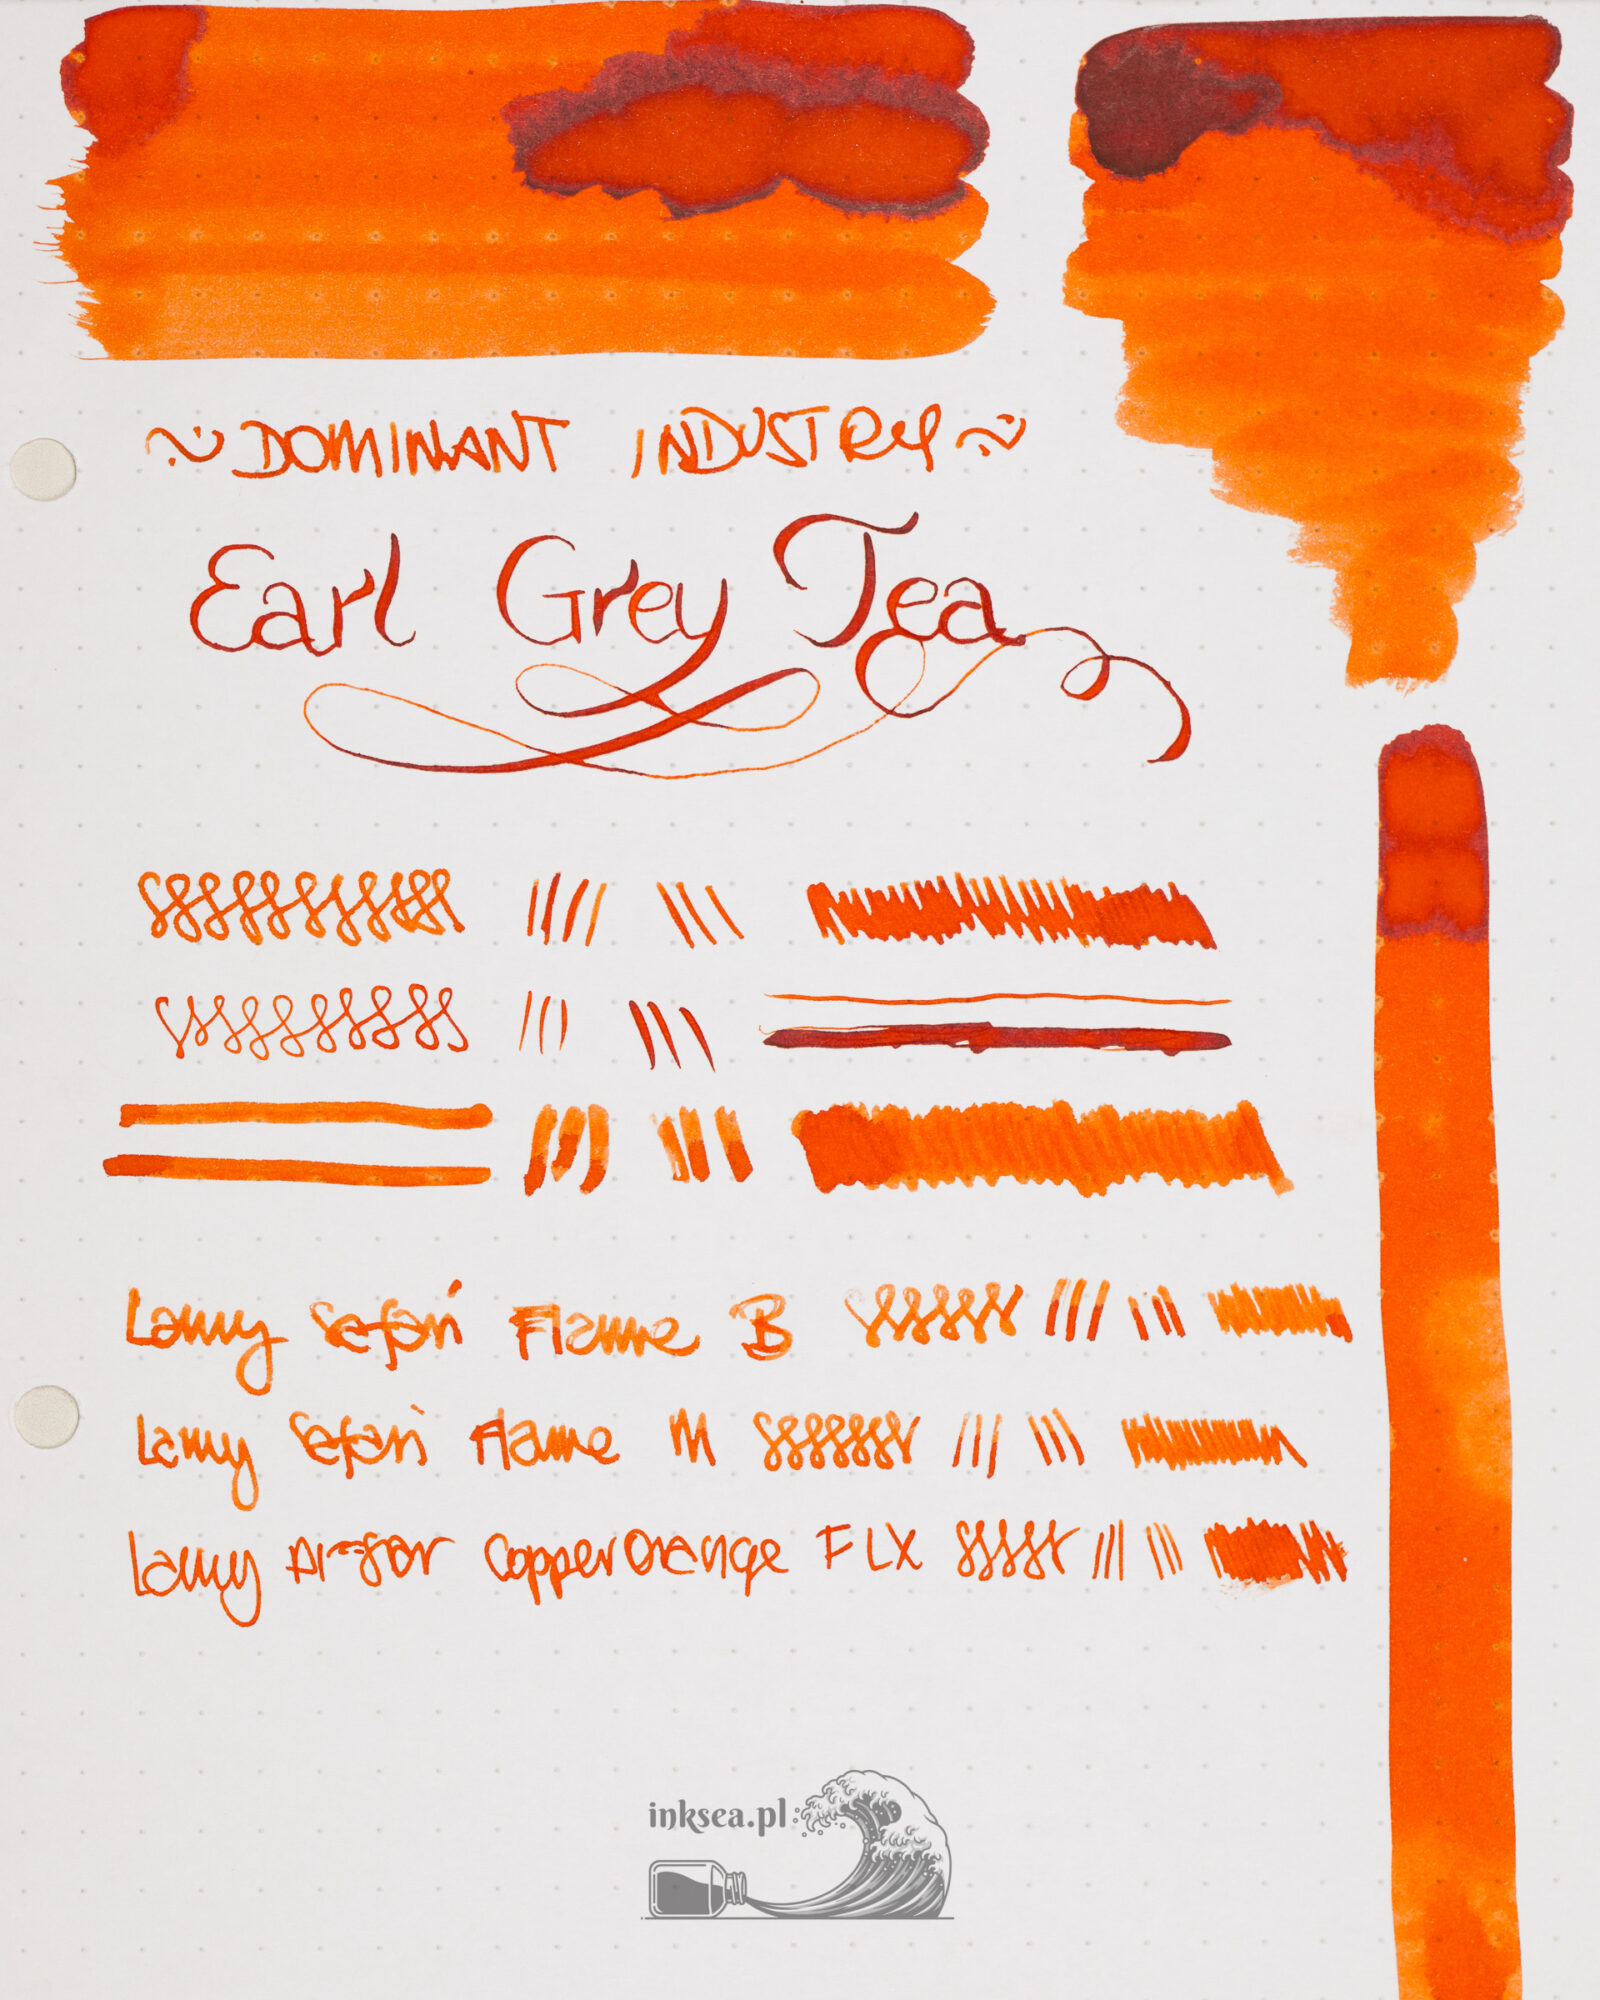 ~ DOMINANT INDUSTRY ~
Earl Grey Tea
Lamy Safari Flame B
Lamy Safari Flame M
Lamy Al-Star CopperOrange F LX
inksea.pl